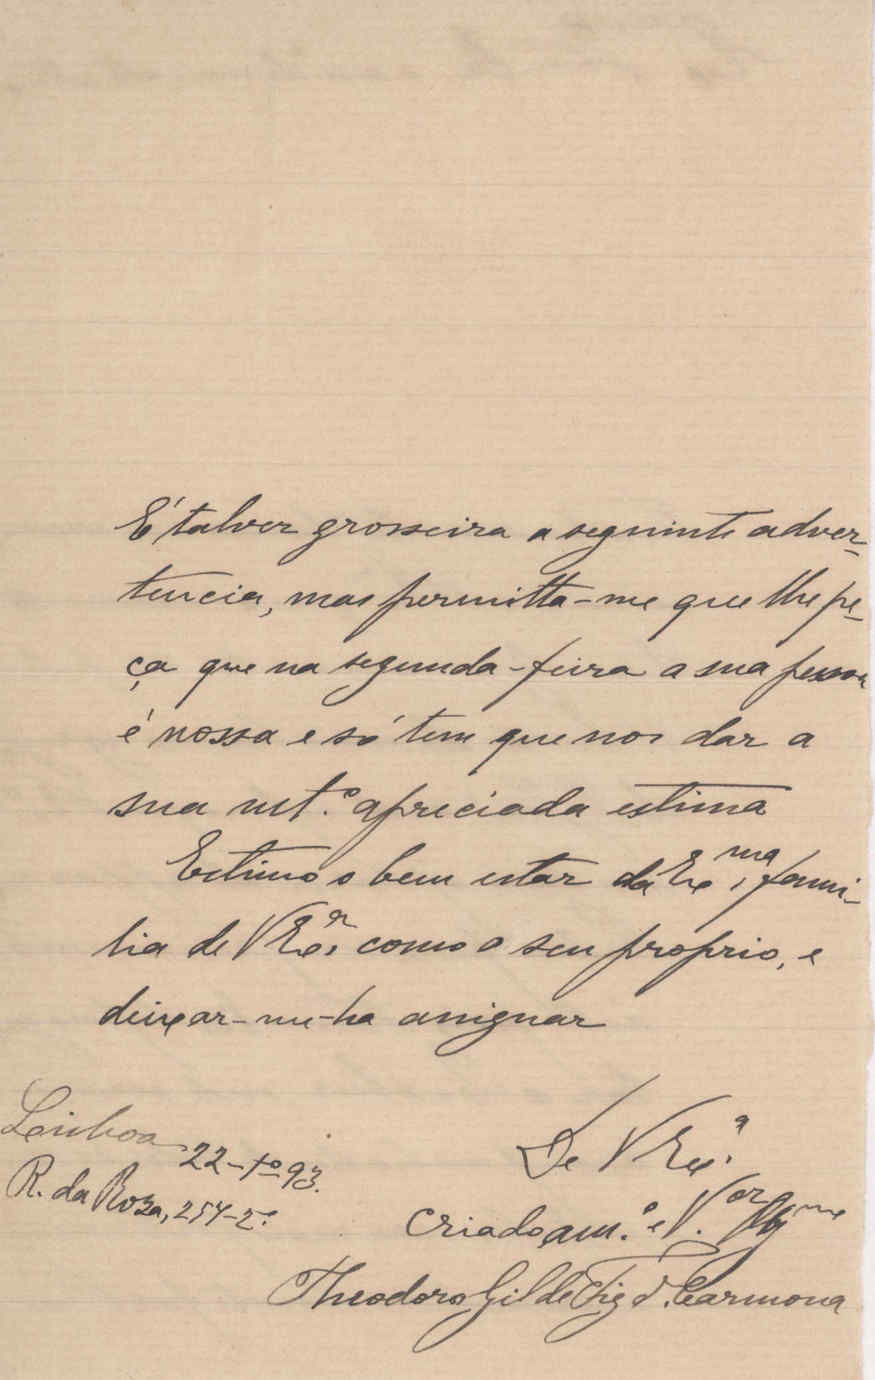 É talvez grosseira a seguinte adver-
tencia, mas permitta-me que lhe pe-
ça que na segunda-feira a sua pessoa
é nossa e só tem que nos dar a
sua mt.º apreciada estima
Estimo o bem estar da Exma. fami-
lia de V Exª. como o seu proprio, e
deixar-me-ha assignar
De V Exª.
Lisboa 22-1º-93.
R. da Roza, 254-2º
criado am.º e V.or
Theodoro Gil de Fig.do Carmona